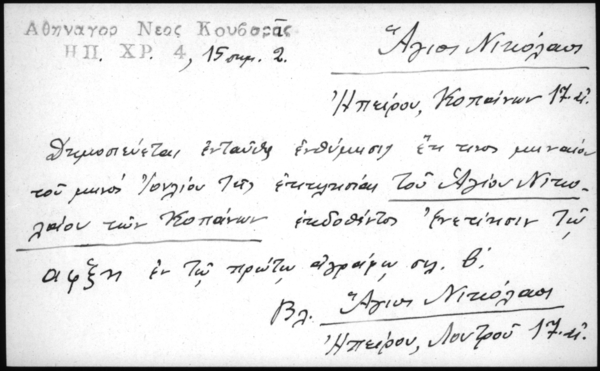 Αθηναγορ Νεος Κουβαρᾶς
ΗΠ. ΧΡ. 4, 15 σημ. 2.
Ἅγιος Νικόλαος
Ἠπείρου, Κοπαίνων 17. αἰ.
Δημοσιεύεται ἐνταῦθα ἐνθύμισις ἔκ τινος μηναίου
τοῦ μηνὸς Ἰουλίου τῆς ἐκκλησίας τοῦ Ἁγίου Νικο-
λαίου τῶν Κοπάνων ἐκδοθέντος Ἐνετίησιν τῷ
αφξη ἐν τῷ πρώτῳ ἀγράφῳ σελ. β'.
Βλ. Ἅγιος Νικόλαος
Ἠπείρου, Λουτροῦ 17. αἰ.